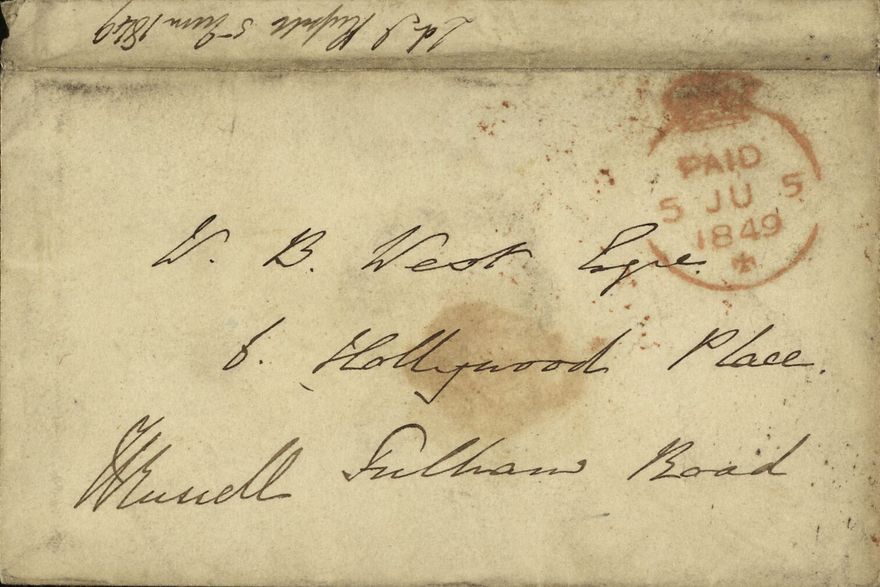 Ld J Russell 5 June 1849
PAID
5 JU 5
1849
W. B. West Esqre.
6. Hollywood Place.
Fulham Road
JRussell